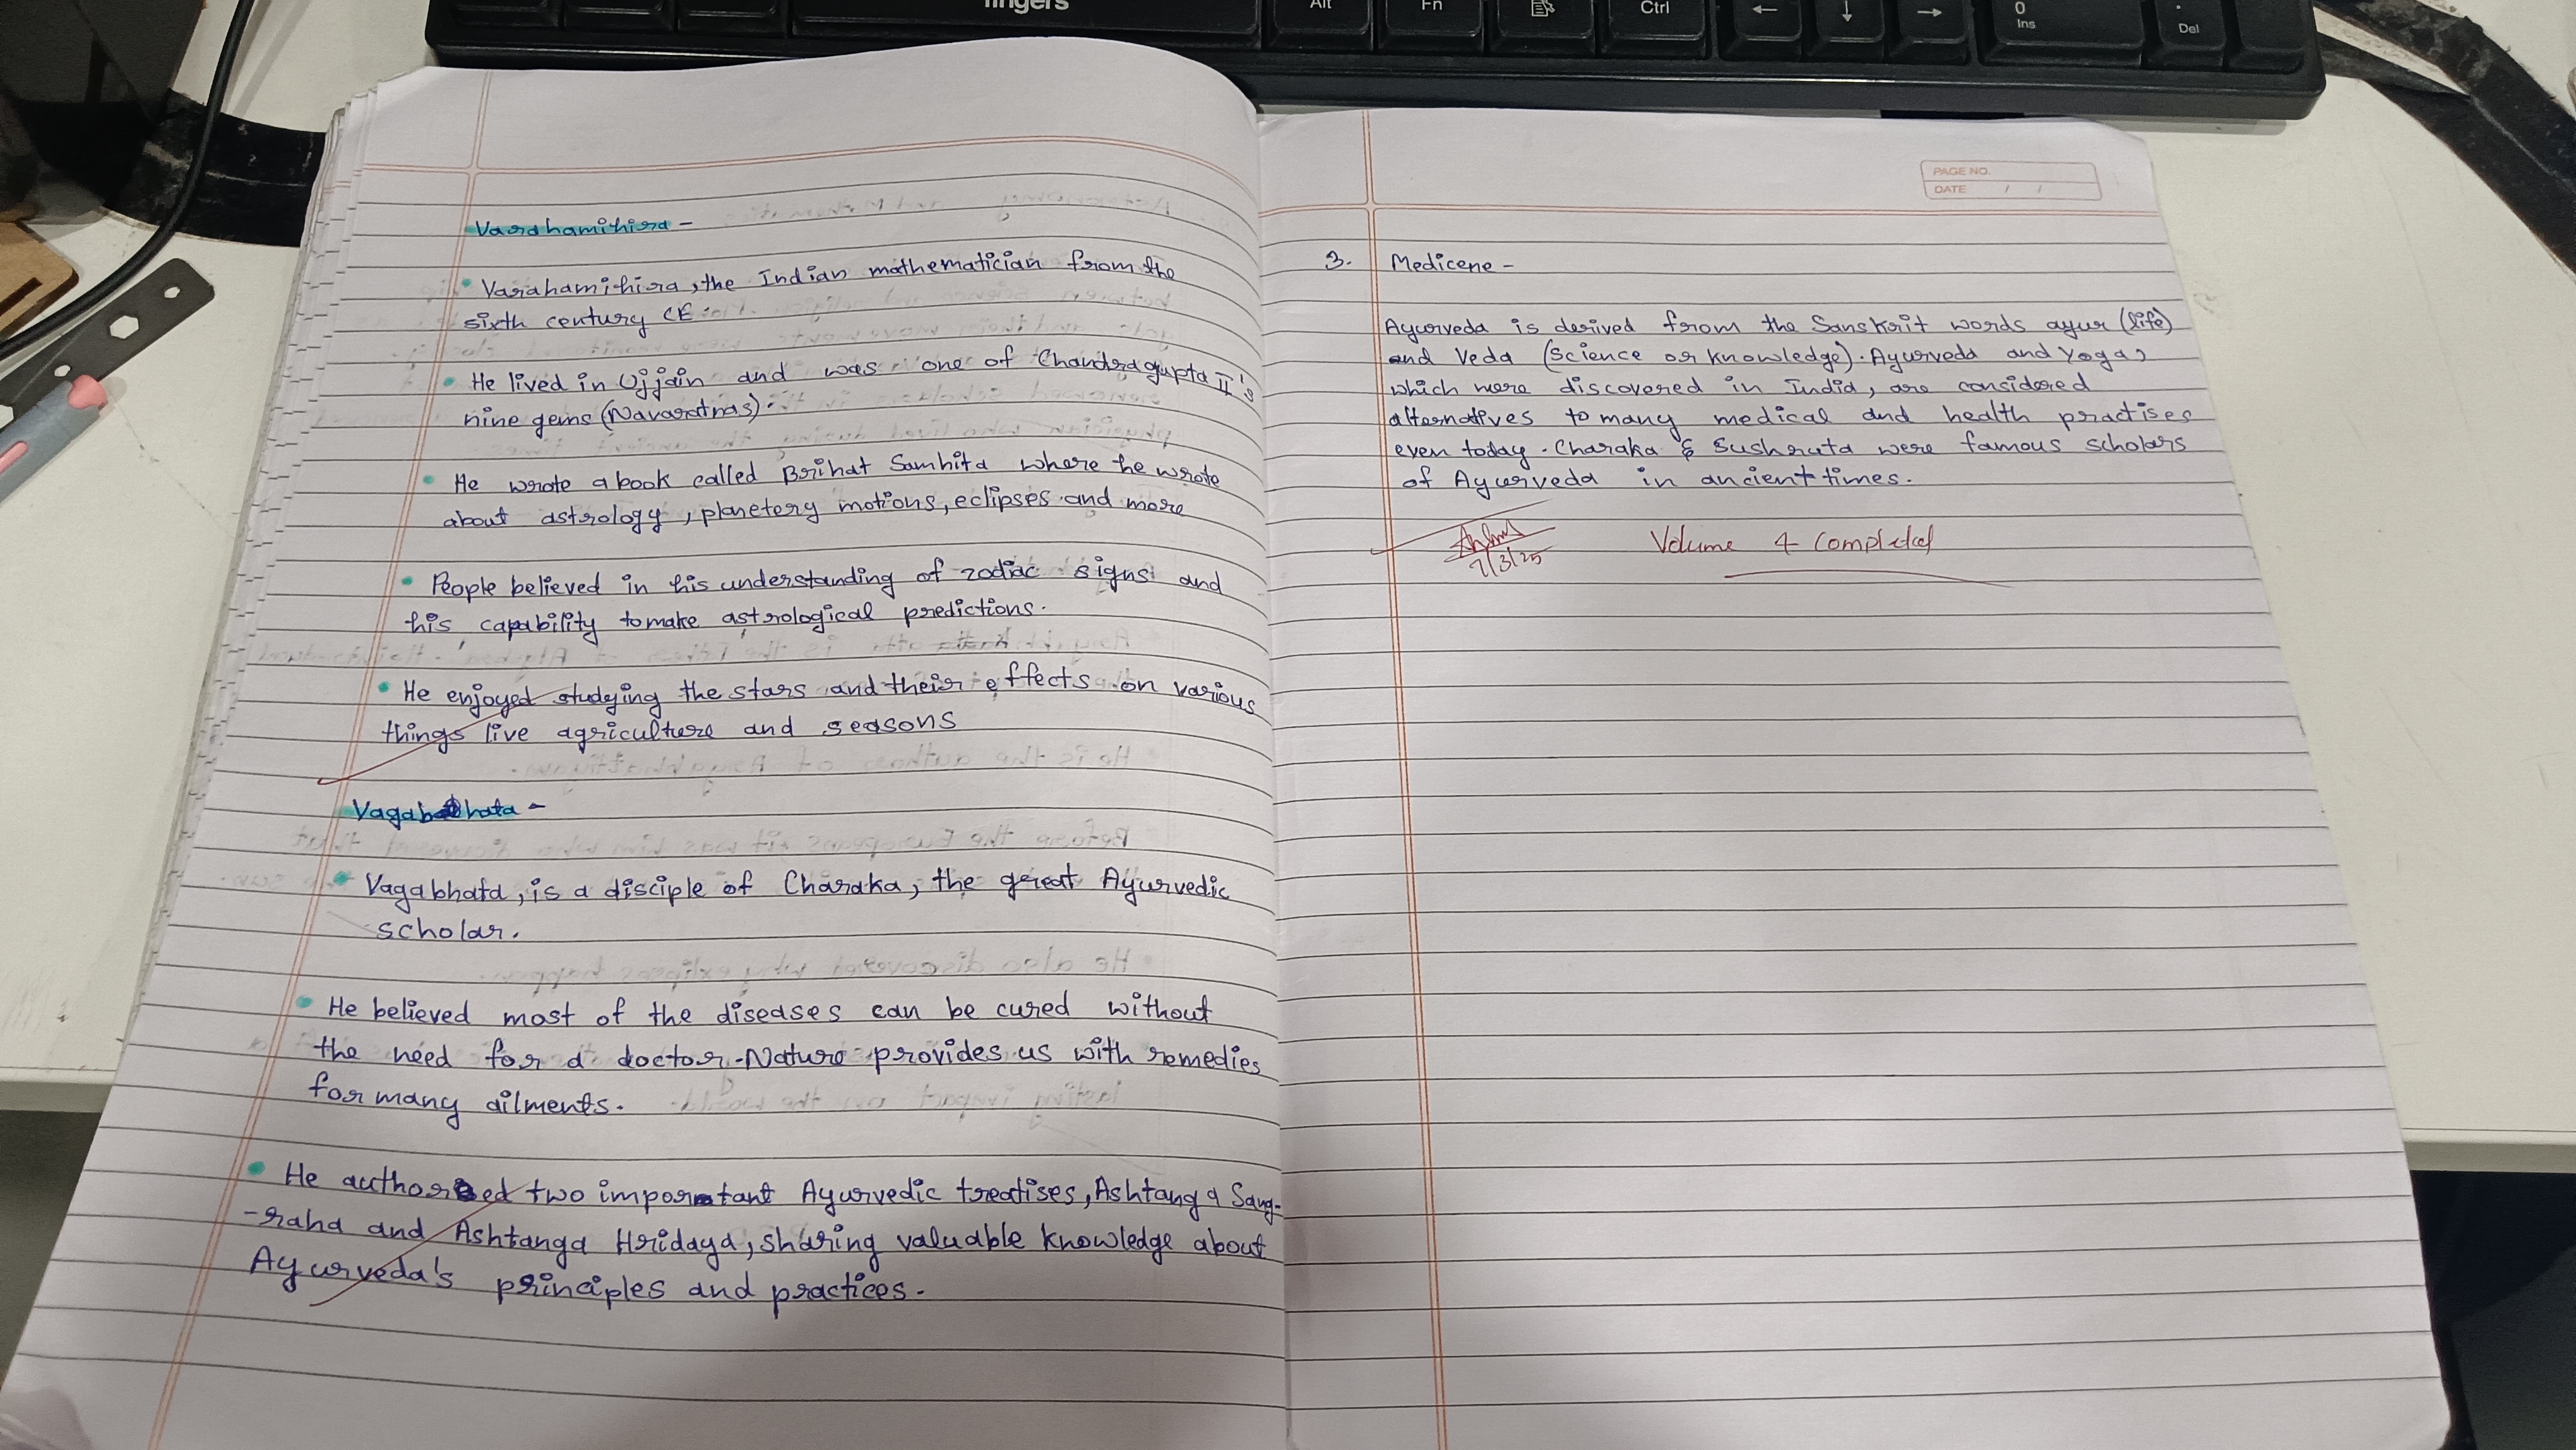 fingers
Alt
Fn
Ctrl
0
Ins
.
Del
Varahamihira -
• Varahamihira, the Indian mathematician from the
sixth century CE.
• He lived in Ujjain and was one of Chandragupta II's
nine gems (Navaratnas).
• He wrote a book called Brihat Samhita where he wrote
about astrology, planetery motions, eclipses and more
• People believed in his understanding of zodiac signs and
his capability to make astrological predictions.
• He enjoyed studying the stars and their effects on various
things live agriculture and seasons
Vagabhata -
• Vagabhata, is a disciple of Charaka, the great Ayurvedic
scholar.
• He believed most of the diseases can be cured without
the need for a doctor. Nature provides us with remedies
for many ailments.
• He authored two important Ayurvedic treatises, Ashtanga Sang-
-raha and Ashtanga Hridaya, sharing valuable knowledge about
Ayurveda's principles and practices.
PAGE NO.
DATE / /
3. Medicene -
Ayurveda is derived from the Sanskrit words ayur (life)
and Veda (Science or knowledge). Ayurveda and Yoga,
which were discovered in India, are considered
alternatives to many medical and health practises
even today. Charaka & Sushruta were famous scholars
of Ayurveda in ancient times.
7/3/25
Volume 4 Completed